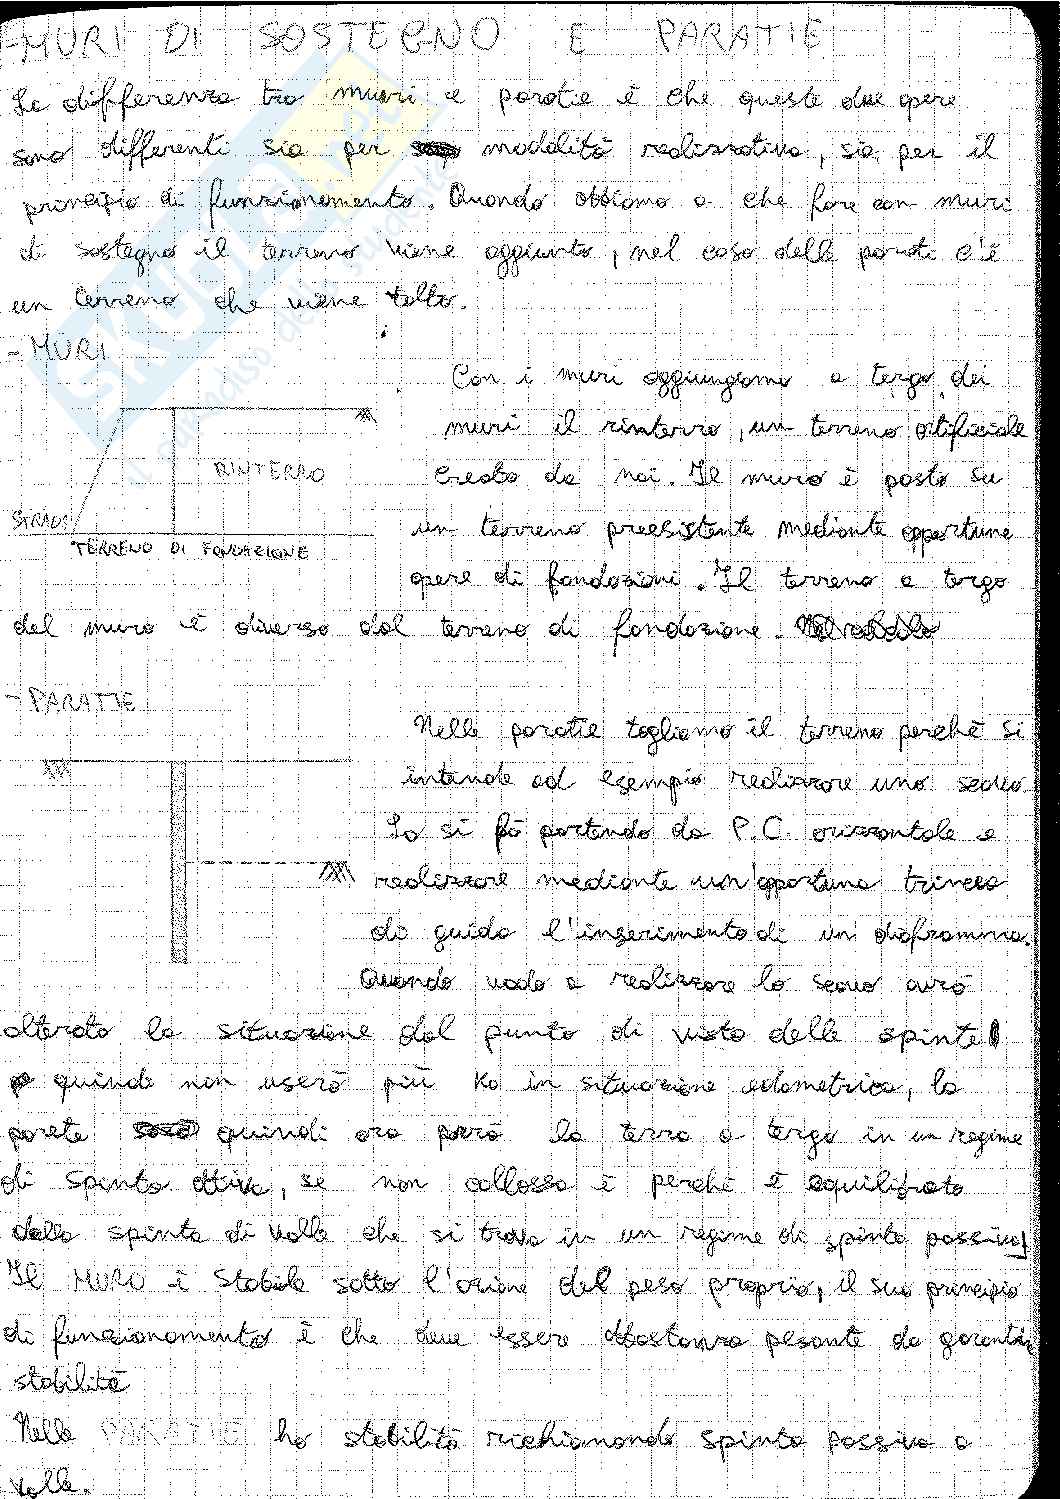 -MURI DI SOSTEGNO E PARATIE
La differenza tra muri e paratie è che queste due opere
sono differenti sia per modalità realizzativa, sia per il
principio di funzionamento. Quando abbiamo a che fare con muri
di sostegno il terreno viene aggiunto, nel caso delle parati c'è
un terreno che viene tolto.
- MURI
Con i muri aggiungiamo a tergo dei
muri il rinterro, un terreno artificiale
RINTERRO
creato da noi. Il muro è posto su
STRADA
un terreno preesistente mediante opportune
TERRENO DI FONDAZIONE
opere di fondazioni. Il terreno a tergo
del muro è diverso dal terreno di fondazione.
- PARATIE
Nelle paratie togliamo il terreno perchè si
intende ad esempio realizzare uno scavo.
Lo si fa partendo da P.C. orizzontale e
realizzare mediante un'opportuna trincea
di guida l'inserimento di un diaframma.
Quando vado a realizzare lo scavo avrò
alterato la situazione dal punto di vista delle spinte
quindi non userò più Ko in situazione edometrica, la
parete quindi ora la terra a tergo in un regime
di spinta attiva, se non collassa è perchè è equilibrato
dalla spinta di valle che si trova in un regime di spinta passiva
Il MURO è stabile sotto l'azione del peso proprio, il suo principio
di funzionamento è che deve essere abbastanza pesante da garantire
stabilità
Nelle PARATIE ho stabilità richiamando spinta passiva a
valle.